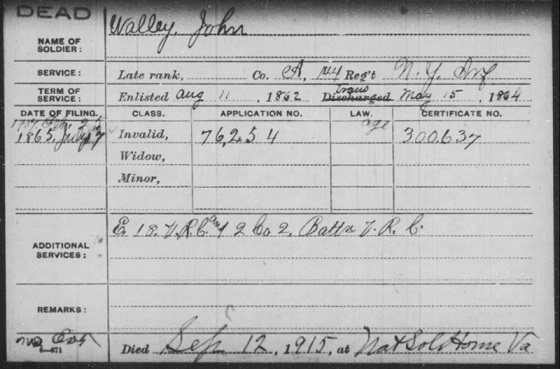 DEAD
NAME OF SOLDIER:
Walley, John
SERVICE:
Late rank, Co. A, 114 Reg't N.Y. Inf
TERM OF SERVICE:
Enlisted Aug 11, 1862
Trans
Discharged May 15, 1864
DATE OF FILING. CLASS. APPLICATION NO. LAW. CERTIFICATE NO.
1865, July 7 Invalid, 76,254 age 300,637
Widow,
Minor,
ADDITIONAL SERVICES:
E. 18. V.R.C. and 2 Co 2. Batt. V.R.C.
REMARKS:
Died Sep 12, 1915, at Nat Sol Home Va